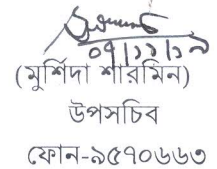 ০৭/১১/১৯
(মুর্শিদা শারমিন)
উপসচিব
ফোন-৯৫৭০৬৬৩